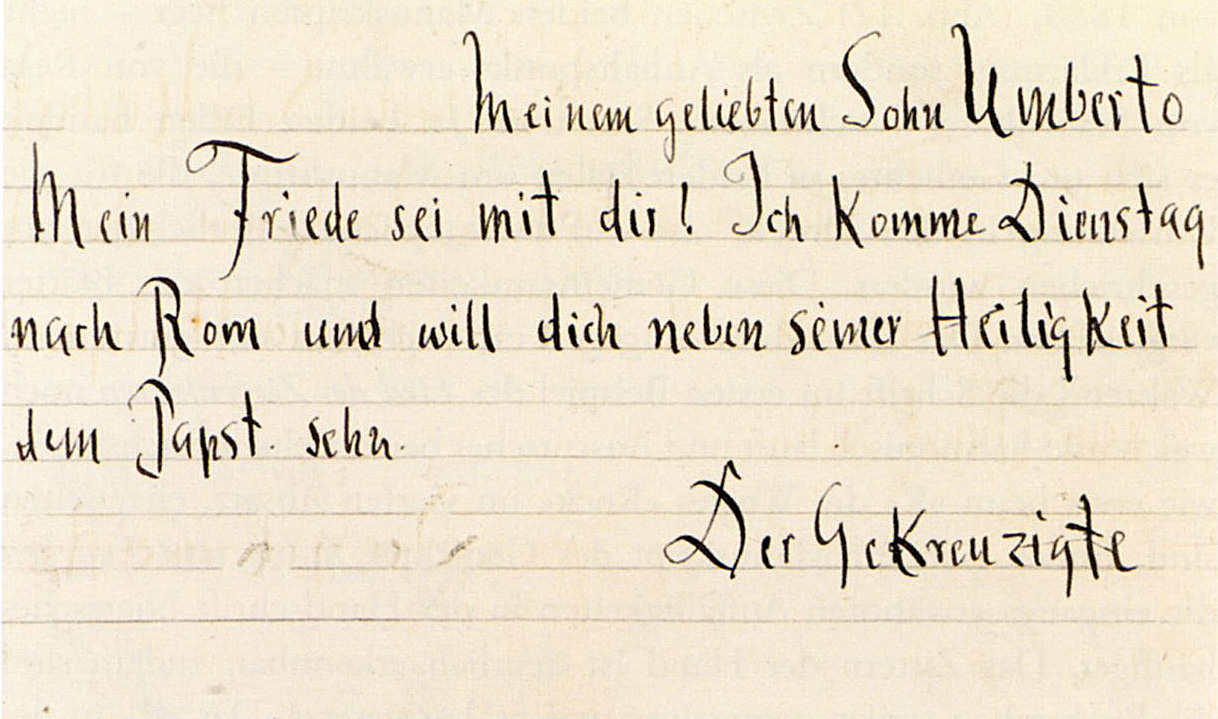 Meinem geliebten Sohn Umberto
Mein Friede sei mit dir! Ich komme Dienstag
nach Rom und will dich neben seiner Heiligkeit
dem Papst sehn.
Der Gekreuzigte